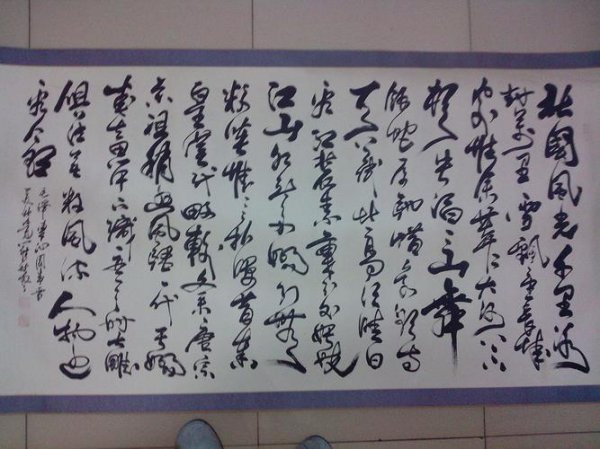 北國風光千里冰
封萬里雪飄望長城
内外惟餘莽莽大河上下
頓失滔滔山舞
銀蛇原馳蠟象欲與
天公試比高須晴日
看紅裝素裹分外妖嬈
江山如此多嬌引無數
英雄競折腰惜秦
皇漢武略輸文采唐宗
宋祖稍遜風騷一代天驕
成吉思汗只識彎弓射大雕
俱往矣數風流人物還
看今朝
毛澤東沁園春雪